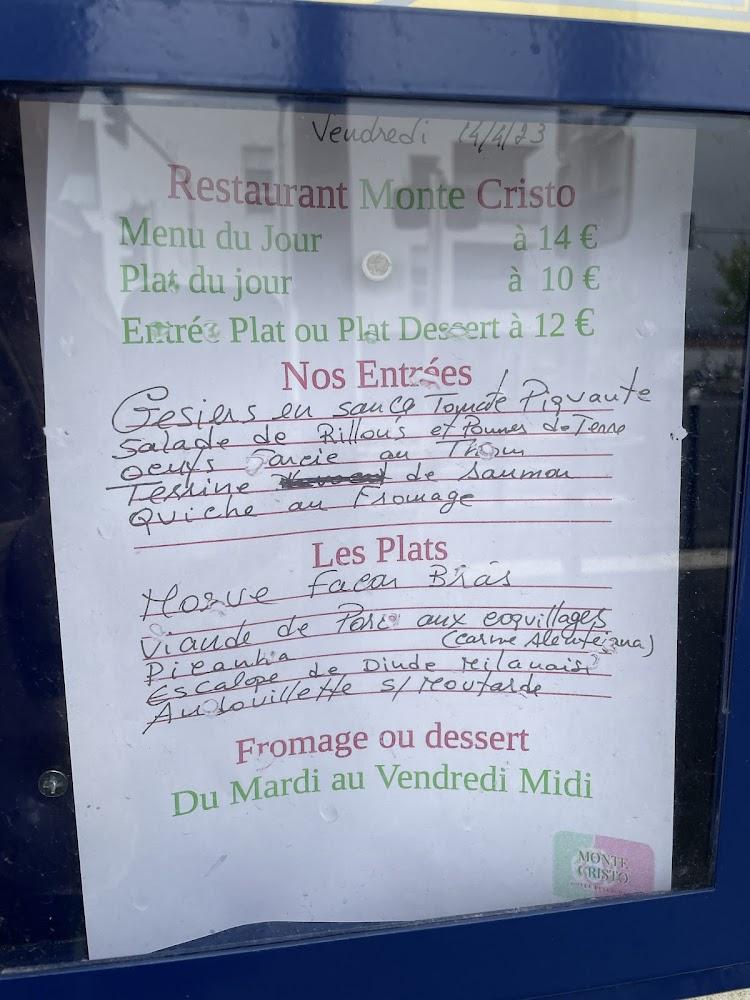 Vendredi 14/4/23
Restaurant Monte Cristo
Menu du Jour à 14 €
Plat du jour à 10 €
Entrée Plat ou Plat Dessert à 12 €
Nos Entrées
Gesiers en sauce Tomate Piquante
Salade de Rillons et Pommes de Terre
oeufs Farcie au Thon
Terrine de saumon
Quiche au Fromage
Les Plats
Morue Facon Brás
Viande de Porc aux coquillages
(carne Alentejana)
Picanha
Escalope de Dinde Milanaise
Andouillette s/ Moutarde
Fromage ou dessert
Du Mardi au Vendredi Midi
MONTE
CRISTO